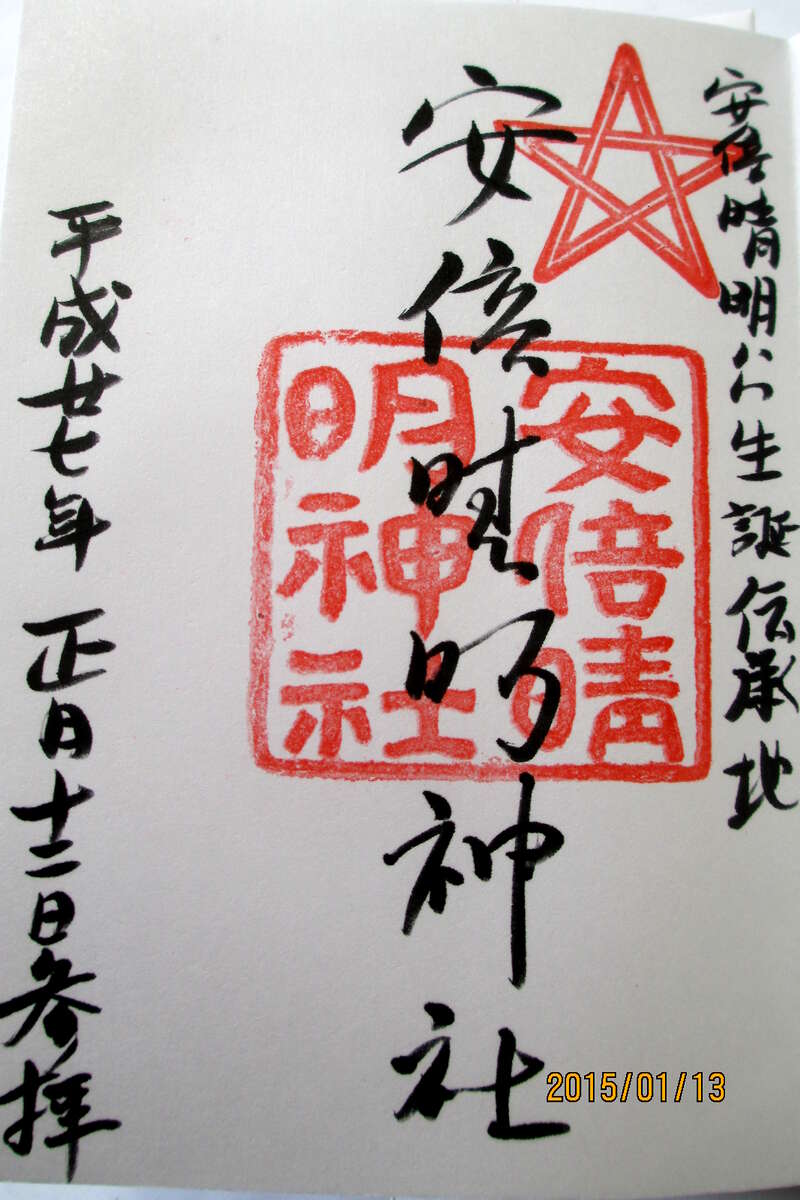 安倍晴明公生誕伝承地
安倍晴明神社
安倍晴
明神社
平成廿七年 正月十二日参拝
2015/01/13